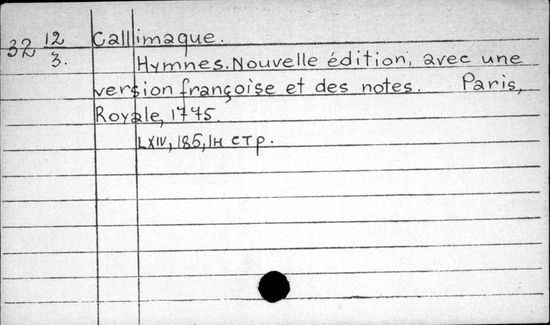 32 12/3. Callimaque.
Hymnes. Nouvelle édition, avec une
version françoise et des notes. Paris,
Royale, 1775.
LXIV, 185, 1н стр.